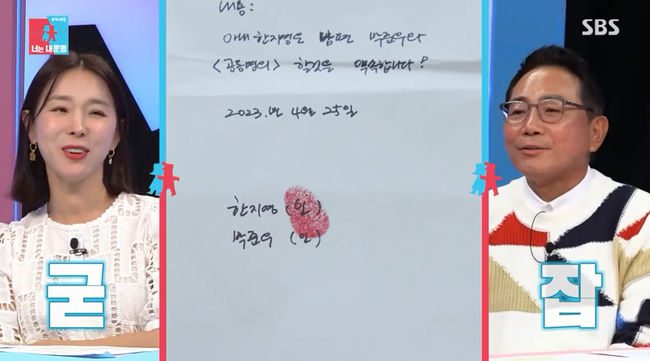 너는 내 운명
SBS
내용:
아내 한지영은 남편 박준우와
<공동명의> 할것을 약속합니다!
2023년 4월 25일
한지영 (인)
박준우 (인)
굳 잡